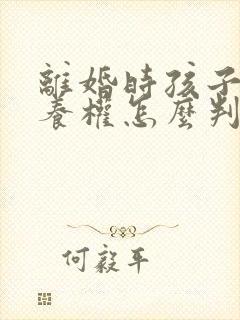 離婚時孩子
養權怎麼判
何毅平